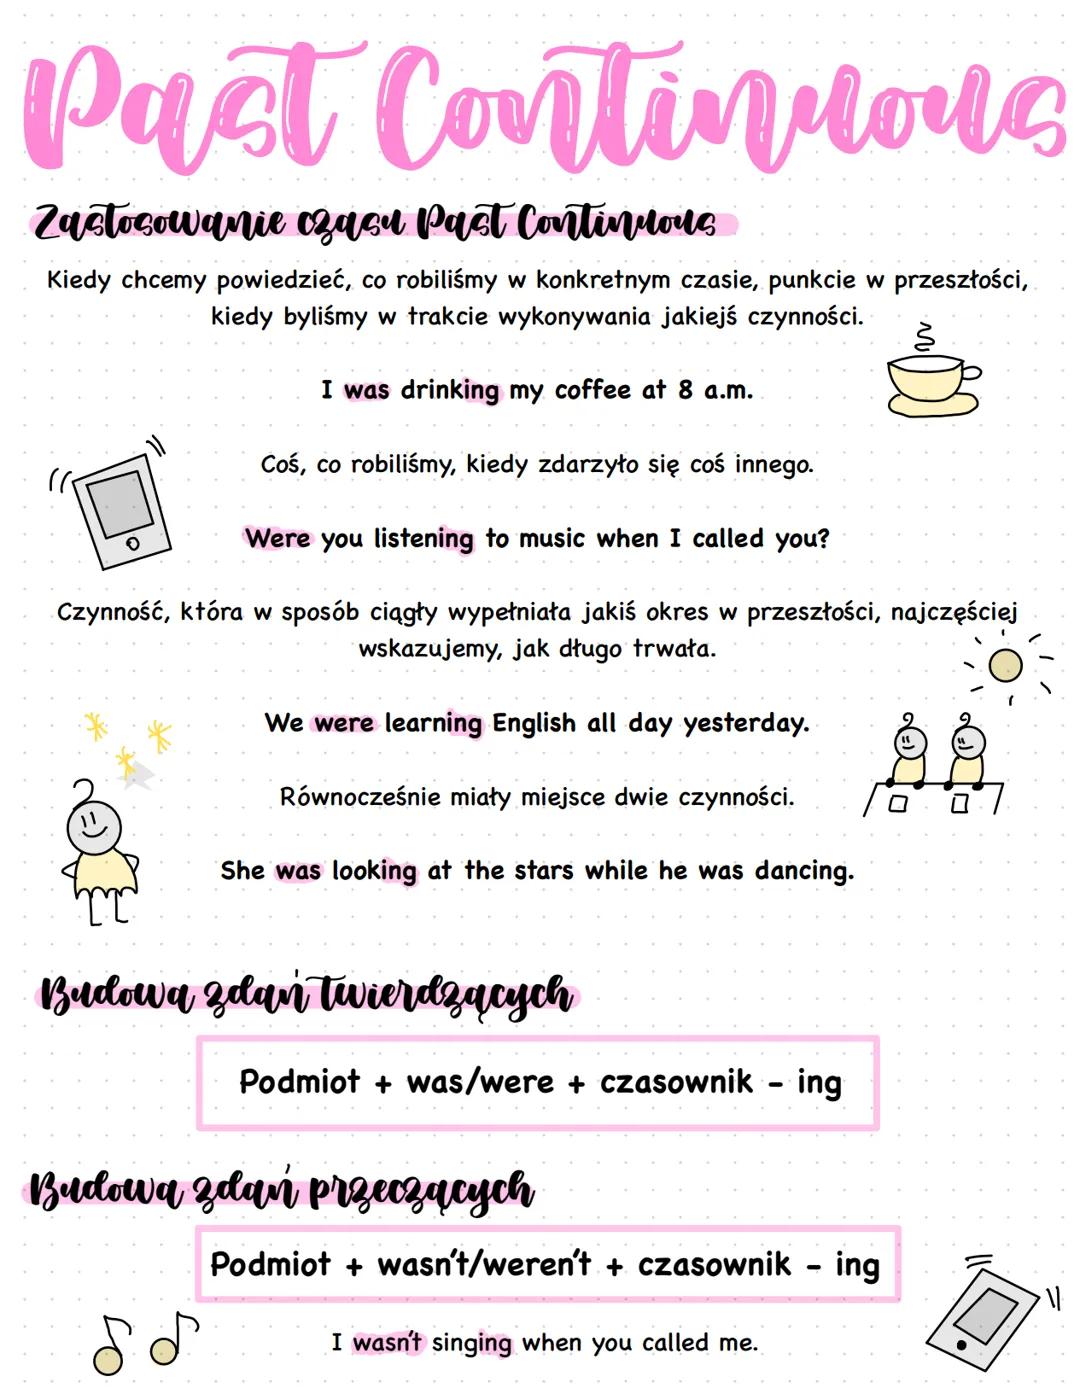 Past Continuous
Zastosowanie czasu Past Continuous
Kiedy chcemy powiedzieć, co robiliśmy w konkretnym czasie, punkcie w przeszłości,
kiedy byliśmy w trakcie wykonywania jakiejś czynności.
I was drinking my coffee at 8 a.m.
Coś, co robiliśmy, kiedy zdarzyło się coś innego.
Were you listening to music when I called you?
Czynność, która w sposób ciągły wypełniała jakiś okres w przeszłości, najczęściej
wskazujemy, jak długo trwała.
We were learning English all day yesterday.
Równocześnie miały miejsce dwie czynności.
She was looking at the stars while he was dancing.
Budowa zdań twierdzących
Podmiot + was/were + czasownik - ing
Budowa zdań przeczących
Podmiot + wasn't/weren't + czasownik - ing
I wasn't singing when you called me.